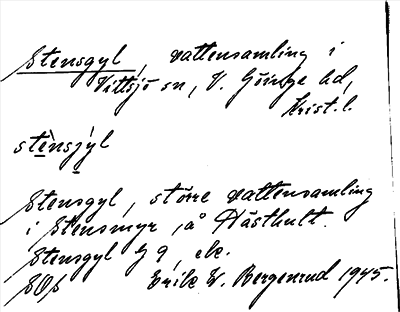 Stensgyl, vattensamling i
Vittsjö sn, V. Göinge hd,
Krist. l.
stènsjýl
Stensgyl, större vattensamling
i Stensmyr, å Hästhult.
Stensgyl G 9, ek.
SOS Erik W. Bergenrud 1945.